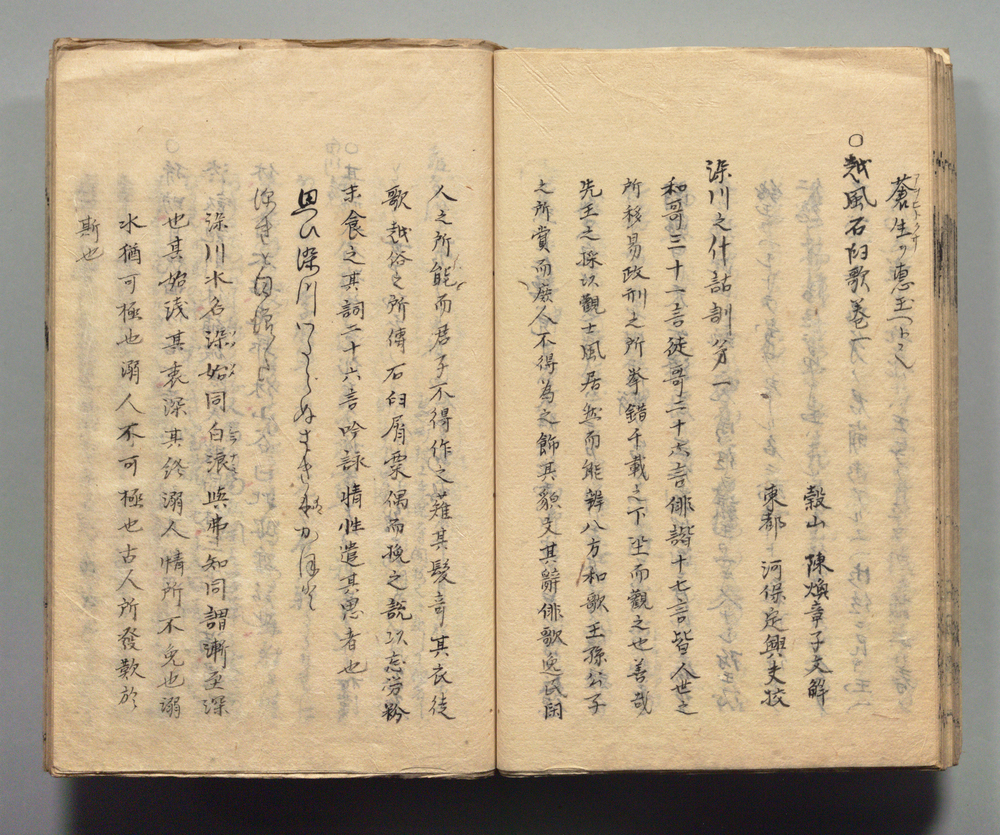 蒼生ノ恵玉
○越風石臼歌巻一
穀山 陳煥章子文解
東都 河保定興夫校
深川之什詁訓第一
和哥三十一言徒哥二十六言俳諧十七言皆人世之
所移易政刑之所挙錯千載之下坐而観之也善哉
先王之採以観士風居然而能辨八方和歌王孫公子
之所賞而庶人不得為之飾其貌史其辭俳歌逸民閑
人之所能而君子不得作之薙其髪奇其衣徒
歌越俗之所傳石臼屑粟偶而挽之説以忘労粉
末食之其詞二十六言吟詠情性遣其思者也
思ひ深川
深川水名深始同白浪與弗知同謂漸至深
也其始浅其衷深其終溺人情所不免也溺
水猶可極也溺人不可極也古人所發歎於
斯也